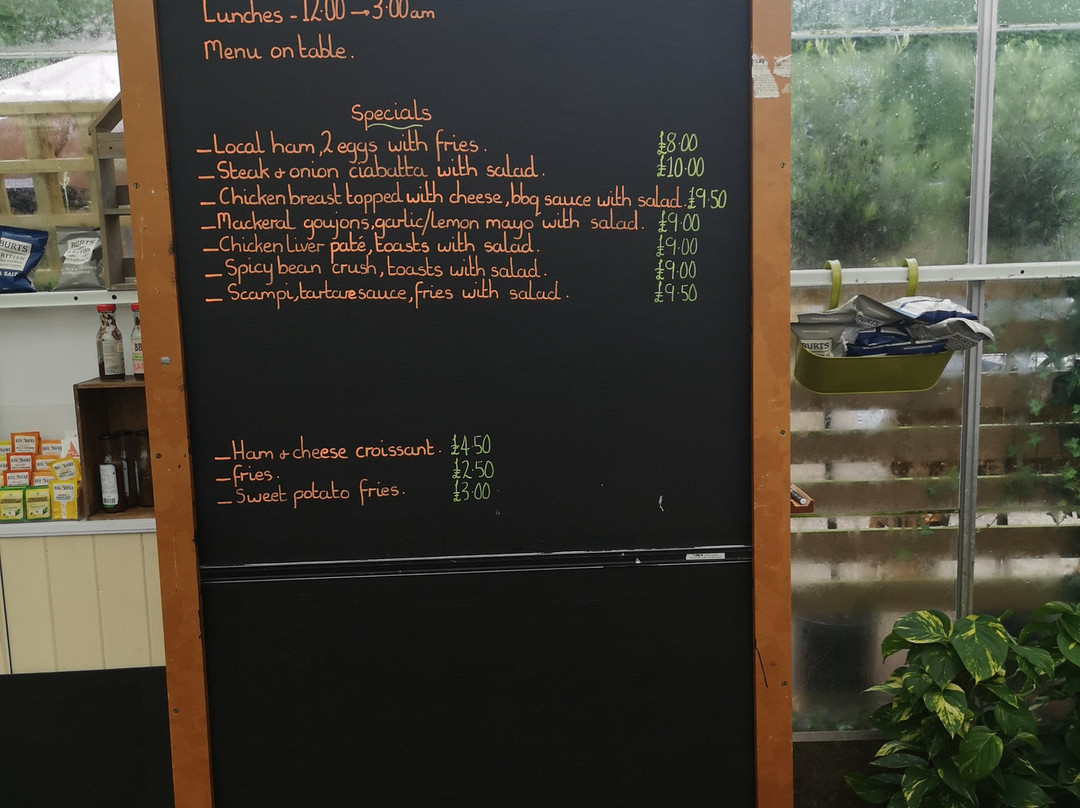 Lunches - 12:00 → 3:00am
Menu on table.
Specials
- Local ham, 2 eggs with fries. £8·00
- Steak + onion ciabatta with salad. £10·00
- Chicken breast topped with cheese, bbq sauce with salad. £9·50
- Mackeral goujons, garlic/lemon mayo with salad. £9·00
- Chicken liver paté, toasts with salad. £9·00
- Spicy bean crush, toasts with salad. £9·00
- Scampi, tartare sauce, fries with salad. £9·50
- Ham + cheese croissant. £4·50
- fries. £2·50
- Sweet potato fries. £3·00
BURTS
BURTS
BURTS